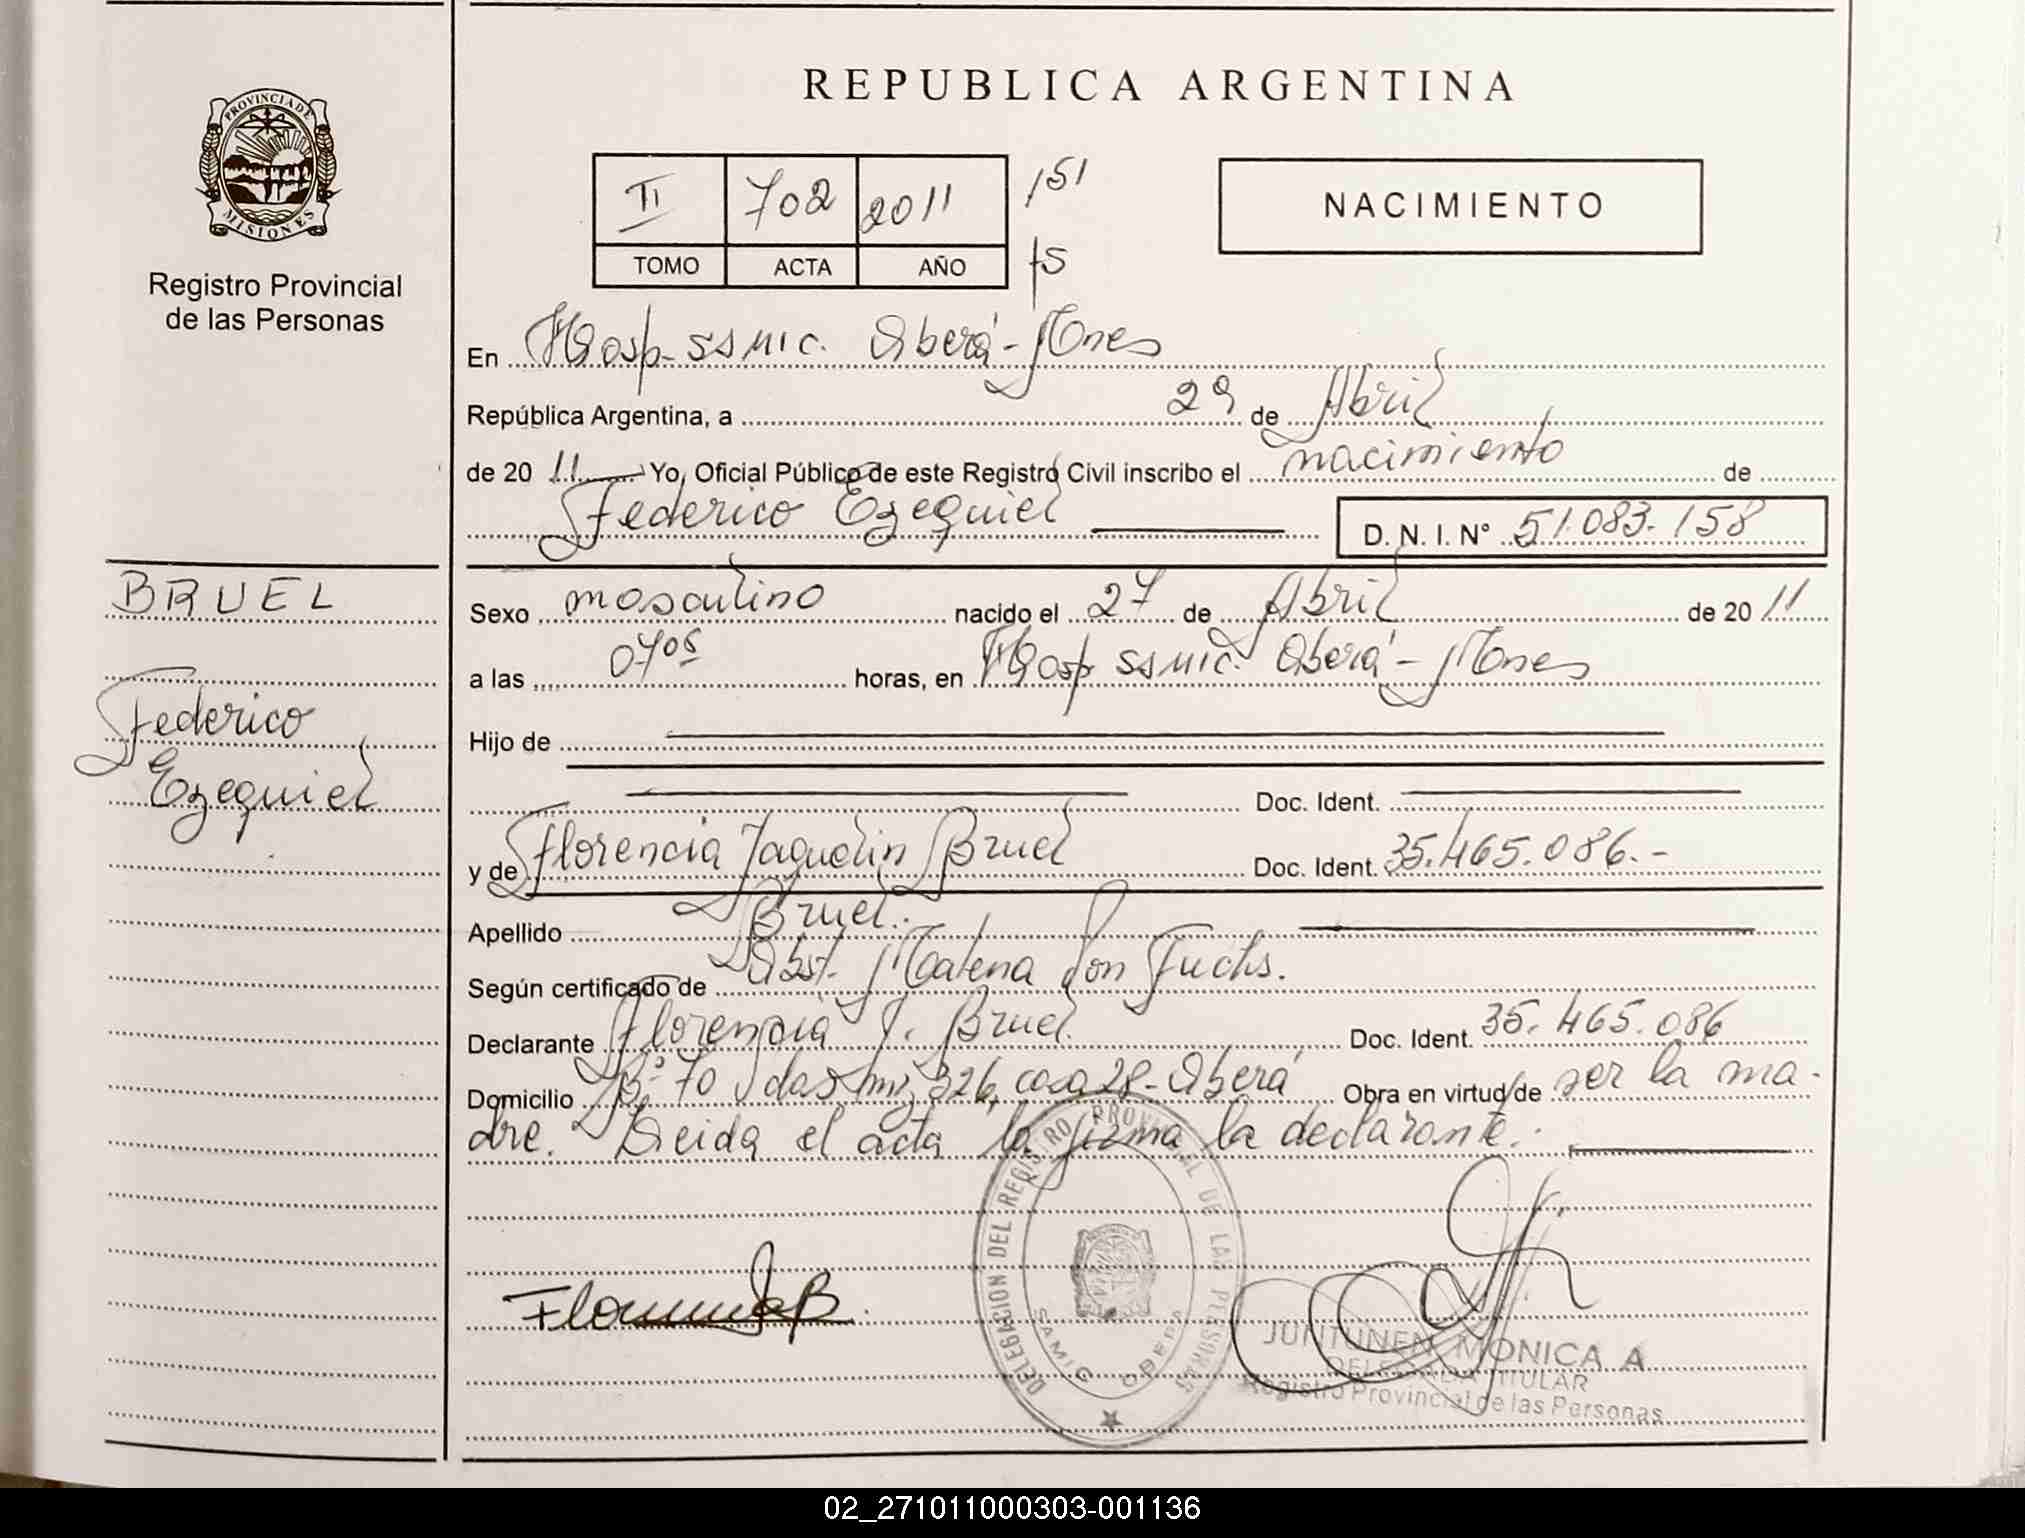 PROVINCIA DE
MISIONES
Registro Provincial
de las Personas
REPUBLICA ARGENTINA
II 702 2011 151
TOMO ACTA AÑO 15
NACIMIENTO
En Hosp. SSMIC. Oberá - Mnes
República Argentina, a 29 de Abril
de 20 11 Yo, Oficial Público de este Registro Civil inscribo el nacimiento de
Federico Ezequiel D. N. I. N° 51.083.158
BRUEL
Federico
Ezequiel
Sexo masculino nacido el 27 de Abril de 20 11
a las 0705 horas, en Hosp SSMIC. Oberá - Mnes
Hijo de
Doc. Ident.
y de Florencia Jaquelin Bruel Doc. Ident. 35.465.086.-
Apellido Bruel.
Según certificado de Obst. Malena Von Fuchs.
Declarante Florencia J. Bruel. Doc. Ident. 35.465.086
Domicilio B° 70 mz 326, casa 28 - Oberá Obra en virtud de ser la ma-
dre. Leida el acta la firma la declarante.
DELEGACION DEL REGISTRO PROVINCIAL DE LAS PERSONAS
SAMIC OBERA
JUNTUNEN MONICA A
DELEGADA TITULAR
Registro Provincial de las Personas
02_271011000303-001136